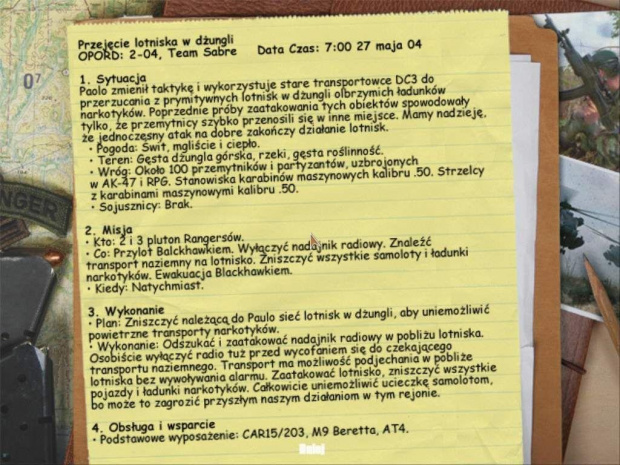 Przejęcie lotniska w dżungli
OPORD: 2-04, Team Sabre Data Czas: 7:00 27 maja 04
1. Sytuacja
Paolo zmienił taktykę i wykorzystuje stare transportowce DC3 do
przerzucania z prymitywnych lotnisk w dżungli olbrzymich ładunków
narkotyków. Poprzednie próby zaatakowania tych obiektów spowodowały
tylko, że przemytnicy szybko przenosili się w inne miejsce. Mamy nadzieję,
że jednoczesny atak na dobre zakończy działanie lotnisk.
• Pogoda: Świt, mgliście i ciepło.
• Teren: Gęsta dżungla górska, rzeki, gęsta roślinność.
• Wróg: Około 100 przemytników i partyzantów, uzbrojonych
w AK-47 i RPG. Stanowiska karabinów maszynowych kalibru .50. Strzelcy
z karabinami maszynowymi kalibru .50.
• Sojusznicy: Brak.
2. Misja
• Kto: 2 i 3 pluton Rangersów.
• Co: Przylot Balckhawkiem. Wyłączyć nadajnik radiowy. Znaleźć
transport naziemny na lotnisko. Zniszczyć wszystkie samoloty i ładunki
narkotyków. Ewakuacja Blackhawkiem.
• Kiedy: Natychmiast.
3. Wykonanie
• Plan: Zniszczyć należącą do Paulo sieć lotnisk w dżungli, aby uniemożliwić
powietrzne transporty narkotyków.
• Wykonanie: Odszukać i zaatakować nadajnik radiowy w pobliżu lotniska.
Osobiście wyłączyć radio tuż przed wycofaniem się do czekającego
transportu naziemnego. Transport ma możliwość podjechania w pobliże
lotniska bez wywoływania alarmu. Zaatakować lotnisko, zniszczyć wszystkie
pojazdy i ładunki narkotyków. Całkowicie uniemożliwić ucieczkę samolotom,
bo może to zagrozić przyszłym naszym działaniom w tym rejonie.
4. Obsługa i wsparcie
• Podstawowe wyposażenie: CAR15/203, M9 Beretta, AT4.
Dalej
07
ANGER